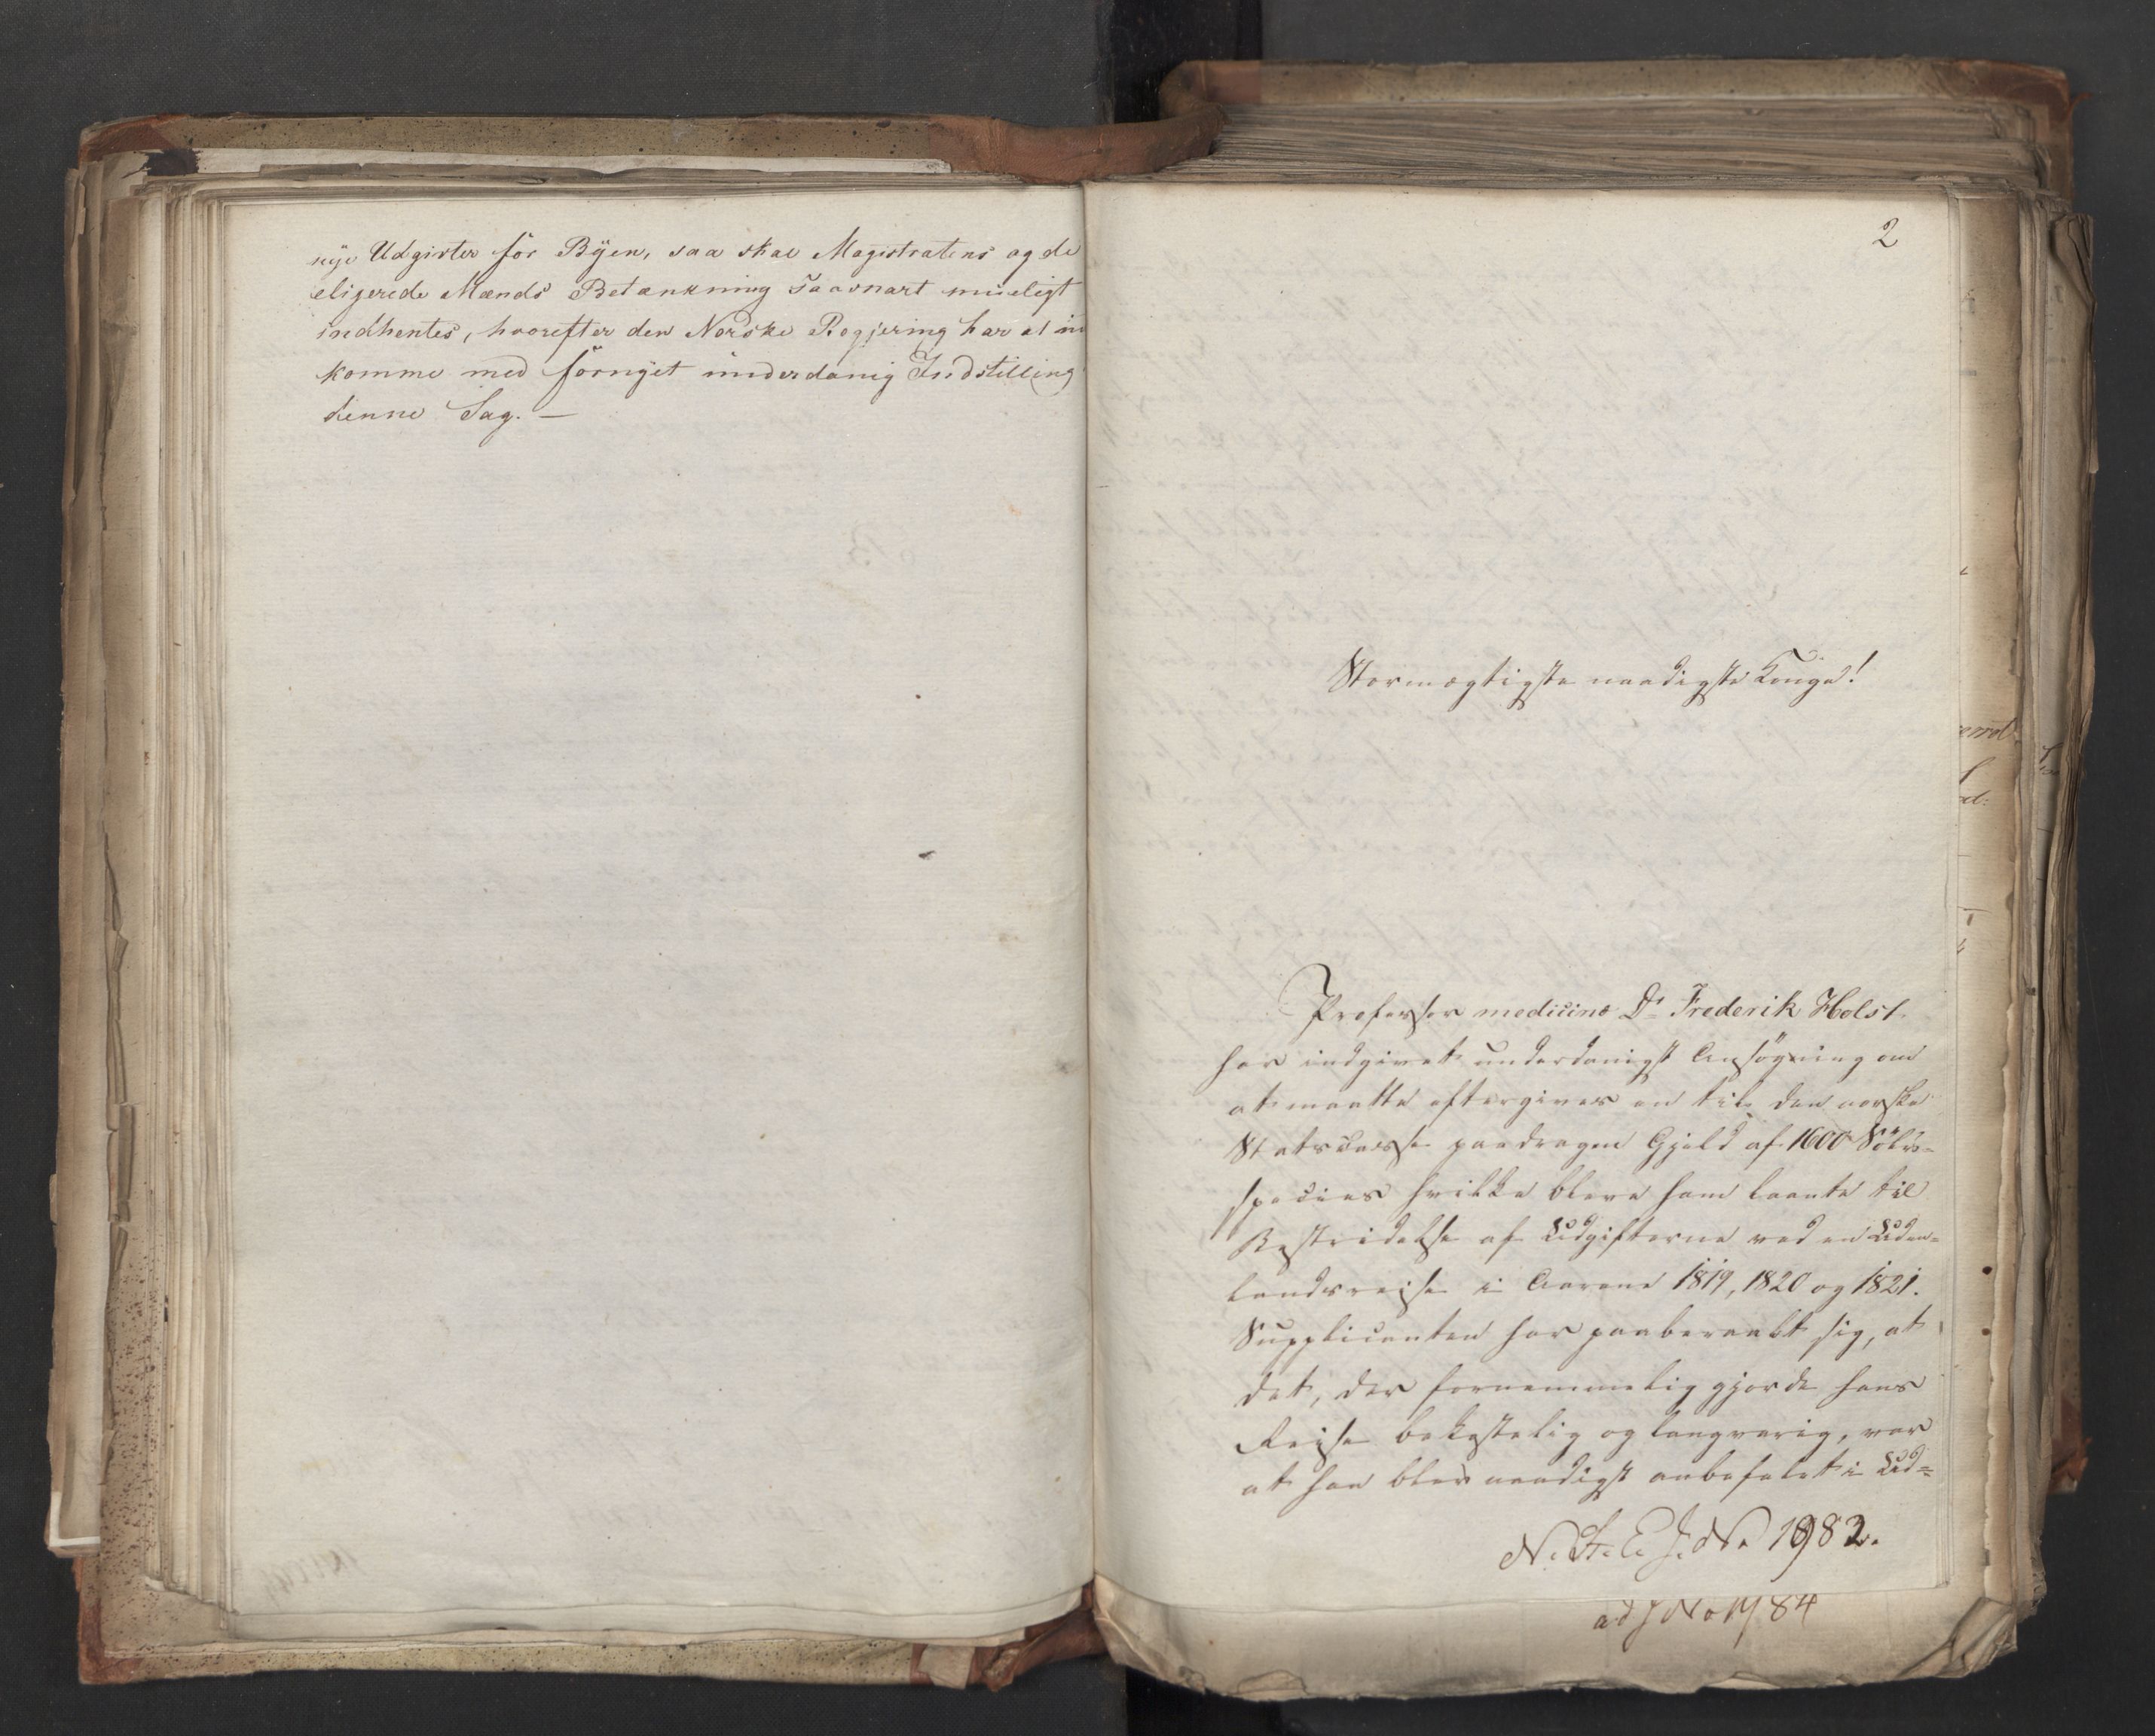 nye Udgivter for Byen, saa skal Magistratens og de
eligerede Mænds Betænkning saasnart mueligt
indhentes, hvorefter den Norske Regjering har at in
komme med fornyet underdanig Indstilling
denne Sag. —
2
Stormægtigste naadigste Konge!
Professor medicinæ Dr Frederik Holst
har indgivet underdanigst Ansøgning om
at maatte eftergives en til den norske
Statscasse paadragen Gjeld af 1600 Sølv=
species hvilke bleve ham laante til
Bestridelse af Udgifterne ved en Uden=
landsreise i Aarene 1819, 1820 og 1821.
Supplicanten har paaberaabt sig, at
det, der fornemmelig gjorde hans
Reise bekostelig og langvarig, var
at han blev naadigst anbefalet i Ud=
N. St. E. J. No 1982.
ad J No 1984